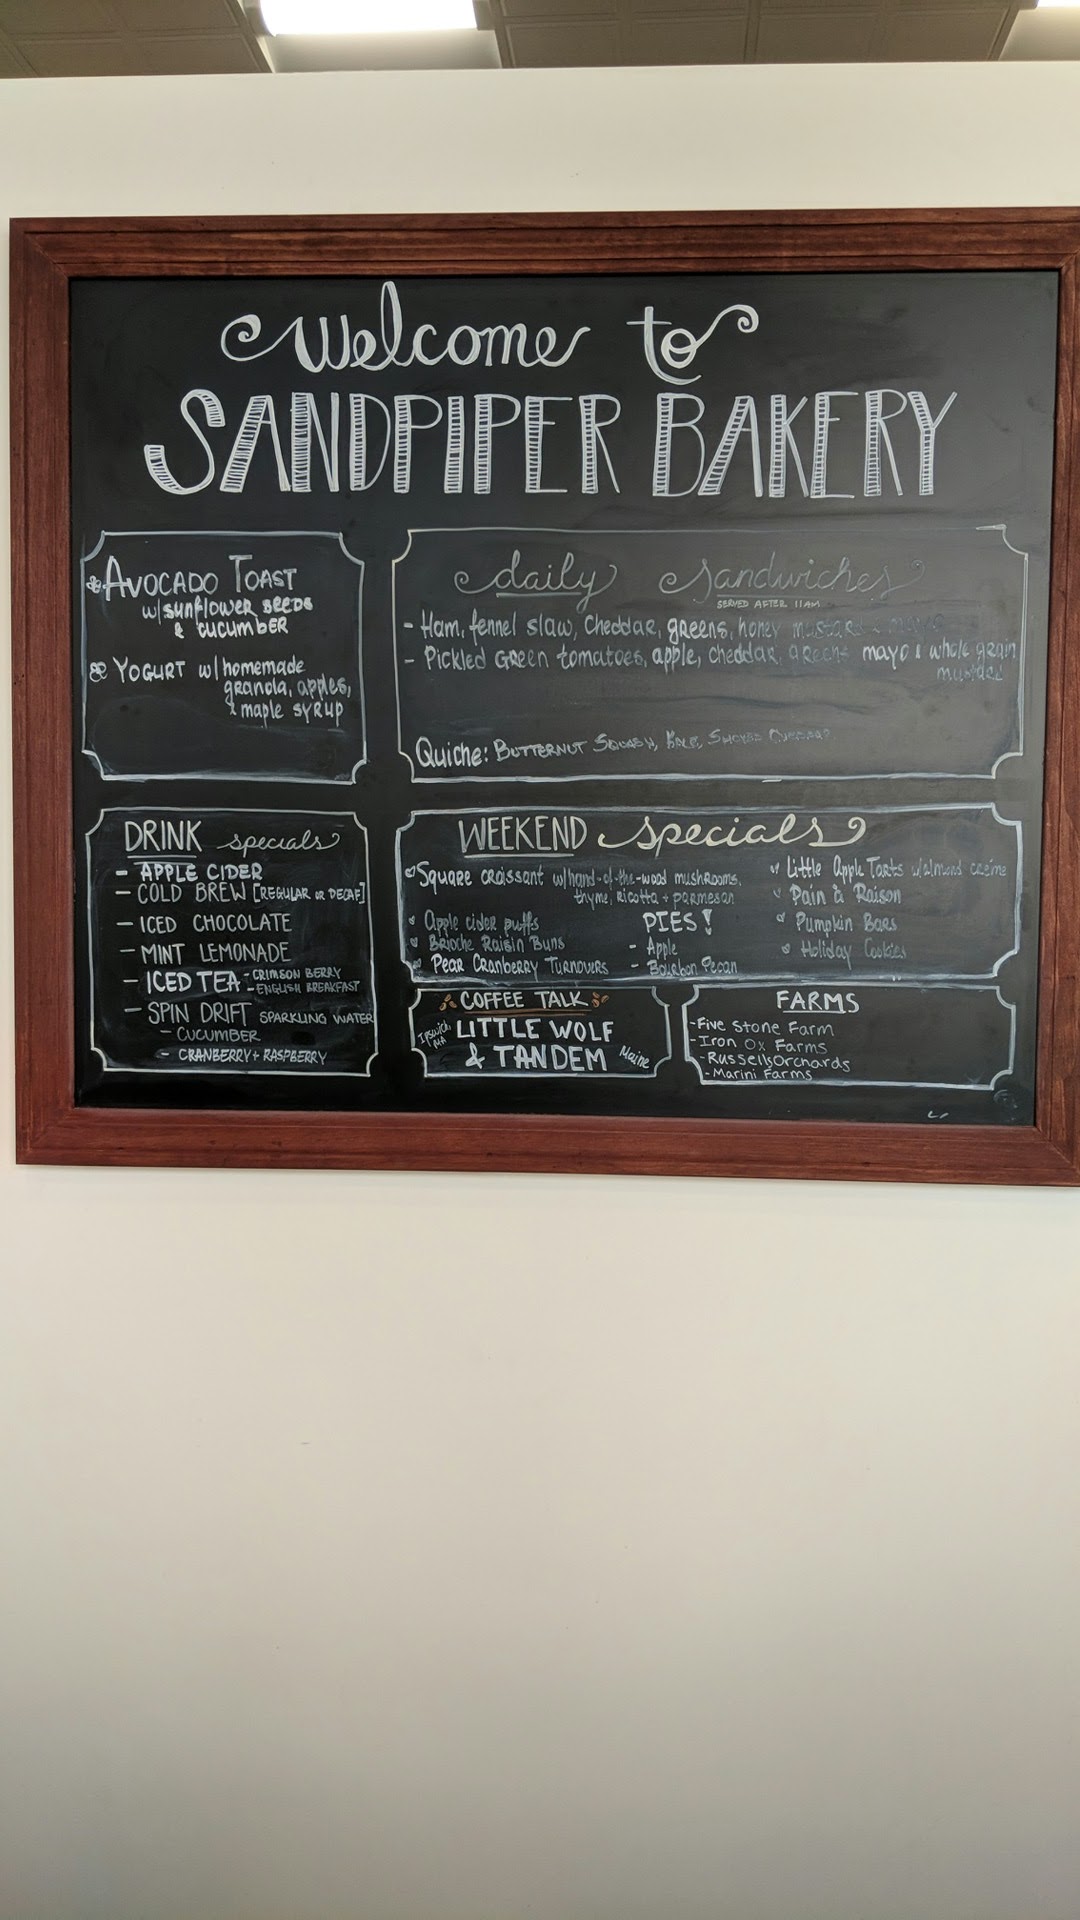 Welcome to
SANDPIPER BAKERY
AVOCADO TOAST
w/ sunflower seeds
& cucumber
YOGURT w/ homemade
granola, apples,
& maple syrup
daily sandwiches
SERVED AFTER 11AM
- Ham, fennel slaw, Cheddar, greens, honey mustard & mayo
- Pickled Green tomatoes, apple, cheddar, greens mayo & whole grain
mustard
Quiche: Butternut Squash, Kale, Smoked Cheddar
DRINK specials
- APPLE CIDER
- COLD BREW [REGULAR OR DECAF]
- ICED CHOCOLATE
- MINT LEMONADE
- ICED TEA - CRIMSON BERRY
- ENGLISH BREAKFAST
- SPIN DRIFT SPARKLING WATER
- CUCUMBER
- CRANBERRY + RASPBERRY
WEEKEND specials
Square croissant w/ hand-of-the-wood mushrooms,
thyme, ricotta + parmesan
Apple cider puffs
Brioche Raisin Buns
Pear Cranberry Turnovers
PIES!
- Apple
- Bourbon Pecan
Little Apple Tarts w/ almond crème
Pain à Raison
Pumpkin Bars
Holiday Cookies
COFFEE TALK
Ipswich MA LITTLE WOLF
& TANDEM Maine
FARMS
- Five Stone Farm
- Iron Ox Farms
- Russells Orchards
- Marini Farms